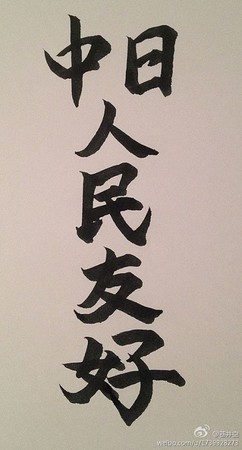 中日
人
民
友
好
weibo.com/u/1739928273